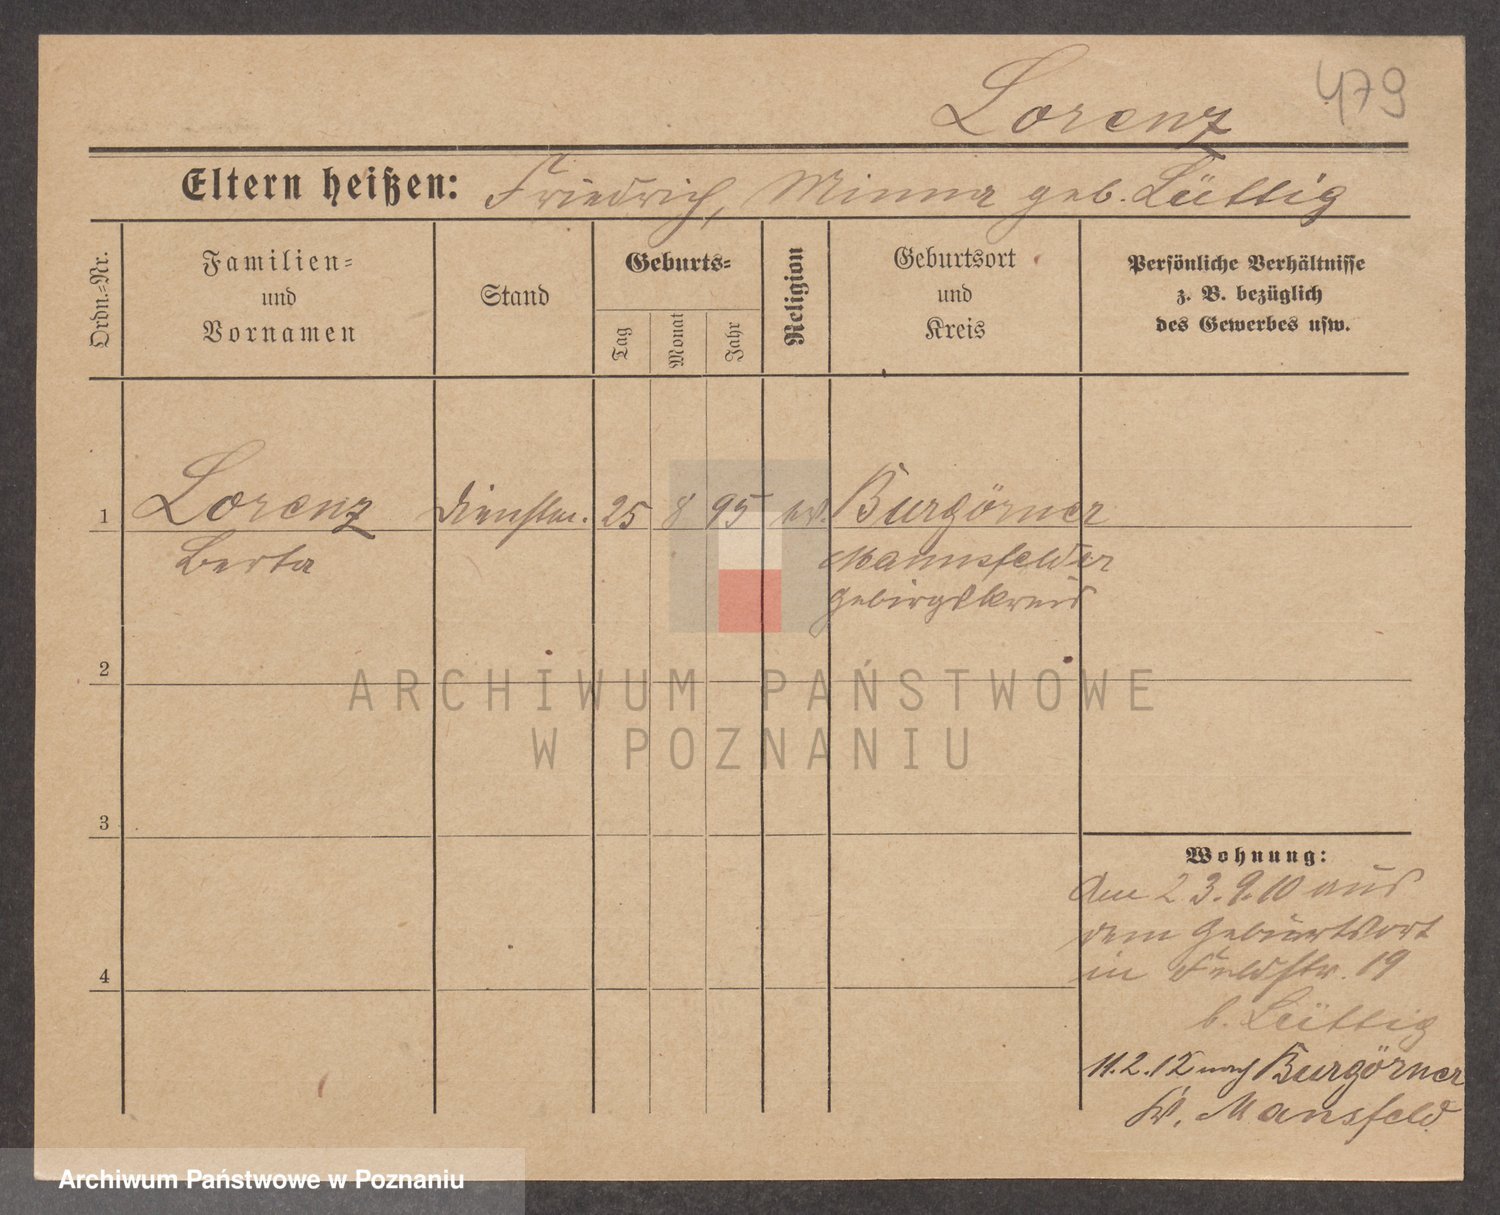 479
Lorenz
Eltern heißen: Friedrich, Minna geb. Lüttig
Ordn.=Nr.
Familien=
und
Vornamen
Stand
Geburts=
Tag
Monat
Jahr
Religion
Geburtsort
und
Kreis
Persönliche Verhältnisse
z. B. bezüglich
des Gewerbes usw.
1
Lorenz
Dienstm. 25 8 95 ev. Burgörner
Berta
Mannsfelder
Gebirgskreis
2
ARCHIWUM PAŃSTWOWE
W POZNANIU
3
Wohnung:
Am 23.9.10 aus
dem Geburtsort
in Feldstr. 19
b. Lüttig
4
11.2.12 nach Burgörner
Kr. Mansfeld
Archiwum Państwowe w Poznaniu